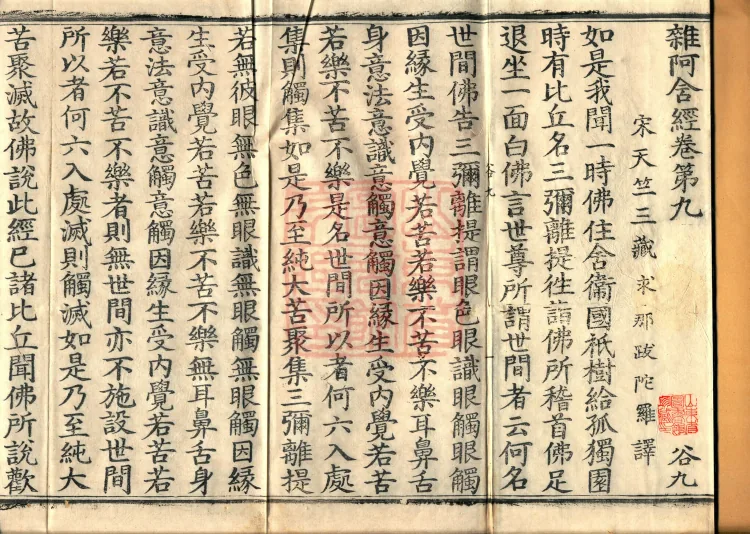 雜阿含經卷第九 谷九
宋天竺三藏求那跋陀羅譯
如是我聞一時佛住舍衞國祇樹給孤獨園
時有比丘名三彌離提徃詣佛所稽首佛足
退坐一面白佛言世尊所謂世間者云何名
谷九 一
世間佛告三彌離提謂眼色眼識眼觸眼觸
因緣生受內覺若苦若樂不苦不樂耳鼻舌
身意法意識意觸意觸因緣生受內覺若苦
若樂不苦不樂是名世間所以者何六入處
集則觸集如是乃至純大苦聚集三彌離提
若無彼眼無色無眼識無眼觸無眼觸因緣
生受內覺若苦若樂不苦不樂無耳鼻舌身
意法意識意觸意觸因緣生受內覺若苦若
樂若不苦不樂者則無世間亦不施設世間
所以者何六入處滅則觸滅如是乃至純大
苦聚滅故佛說此經已諸比丘聞佛所說歡